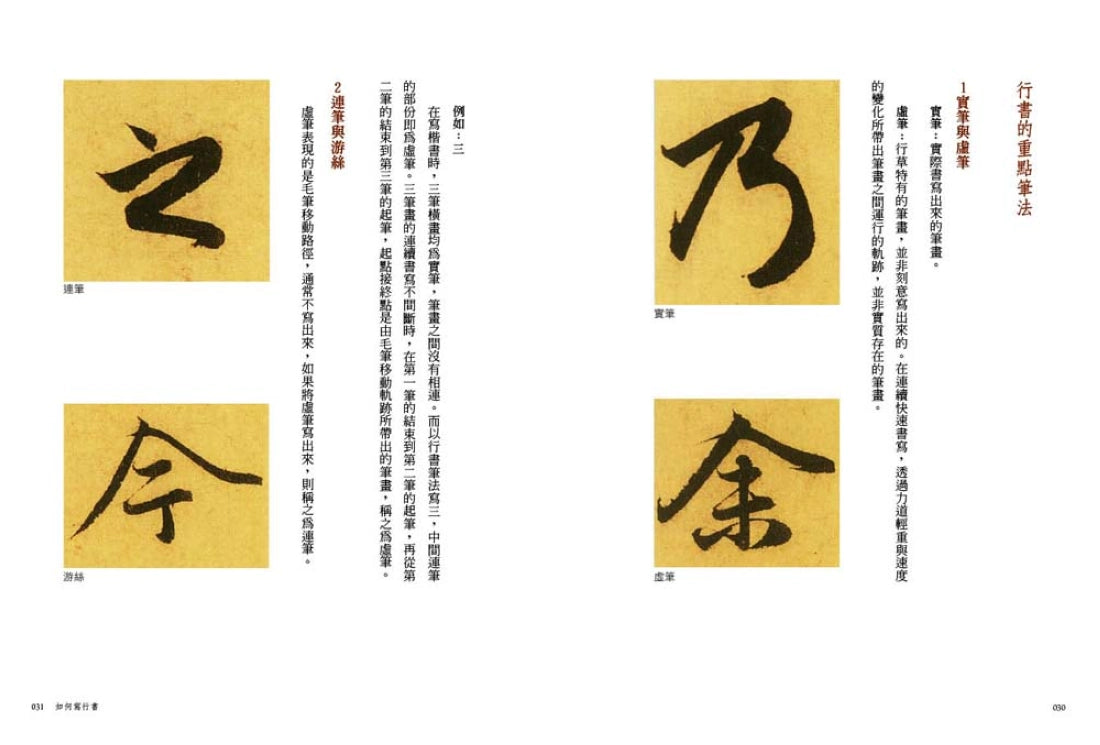 行書的重點筆法
1實筆與虛筆
實筆：實際書寫出來的筆畫。
虛筆：行草特有的筆畫，並非刻意寫出來的。在連續快速書寫，透過力道輕重與速度
的變化所帶出筆畫之間運行的軌跡，並非實質存在的筆畫。
乃
實筆
余
虛筆
030
例如：三
在寫楷書時，三筆橫畫均為實筆，筆畫之間沒有相連。而以行書筆法寫三，中間連筆
的部份即為虛筆。三筆畫的連續書寫不間斷時，在第一筆的結束到第二筆的起筆，再從第
二筆的結束到第三筆的起筆，起點接終點是由毛筆移動軌跡所帶出的筆畫，稱之為虛筆。
2連筆與游絲
虛筆表現的是毛筆移動路徑，通常不寫出來，如果將虛筆寫出來，則稱之為連筆。
之
連筆
今
游絲
031 如何寫行書